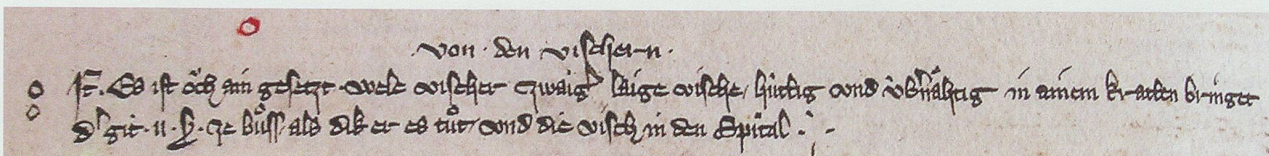 von · den vischern ·
It. Es ist oͤch ain gesetzt · wele vischer zwaigͥ laige vische / huͥttig und uͥbnaͤhtig in ainem kratten bringet
dͥ git · ii · ß · ze buͦss / als dik er es tuͦt / und die visch in den Spital ·